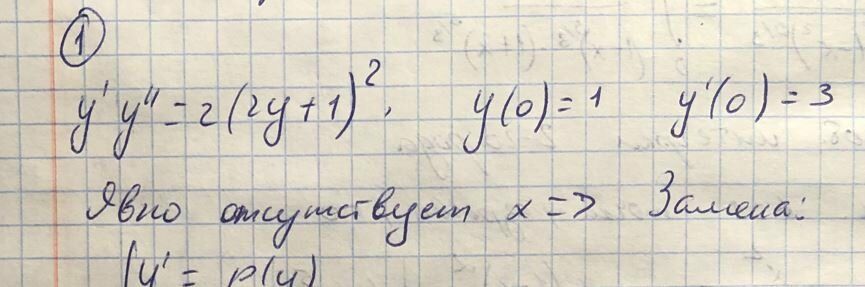 ①
y' y'' = 2(2y+1)², y(0)=1 y'(0)=3
Явно отсутствует x => Замена:
{y' = p(y)